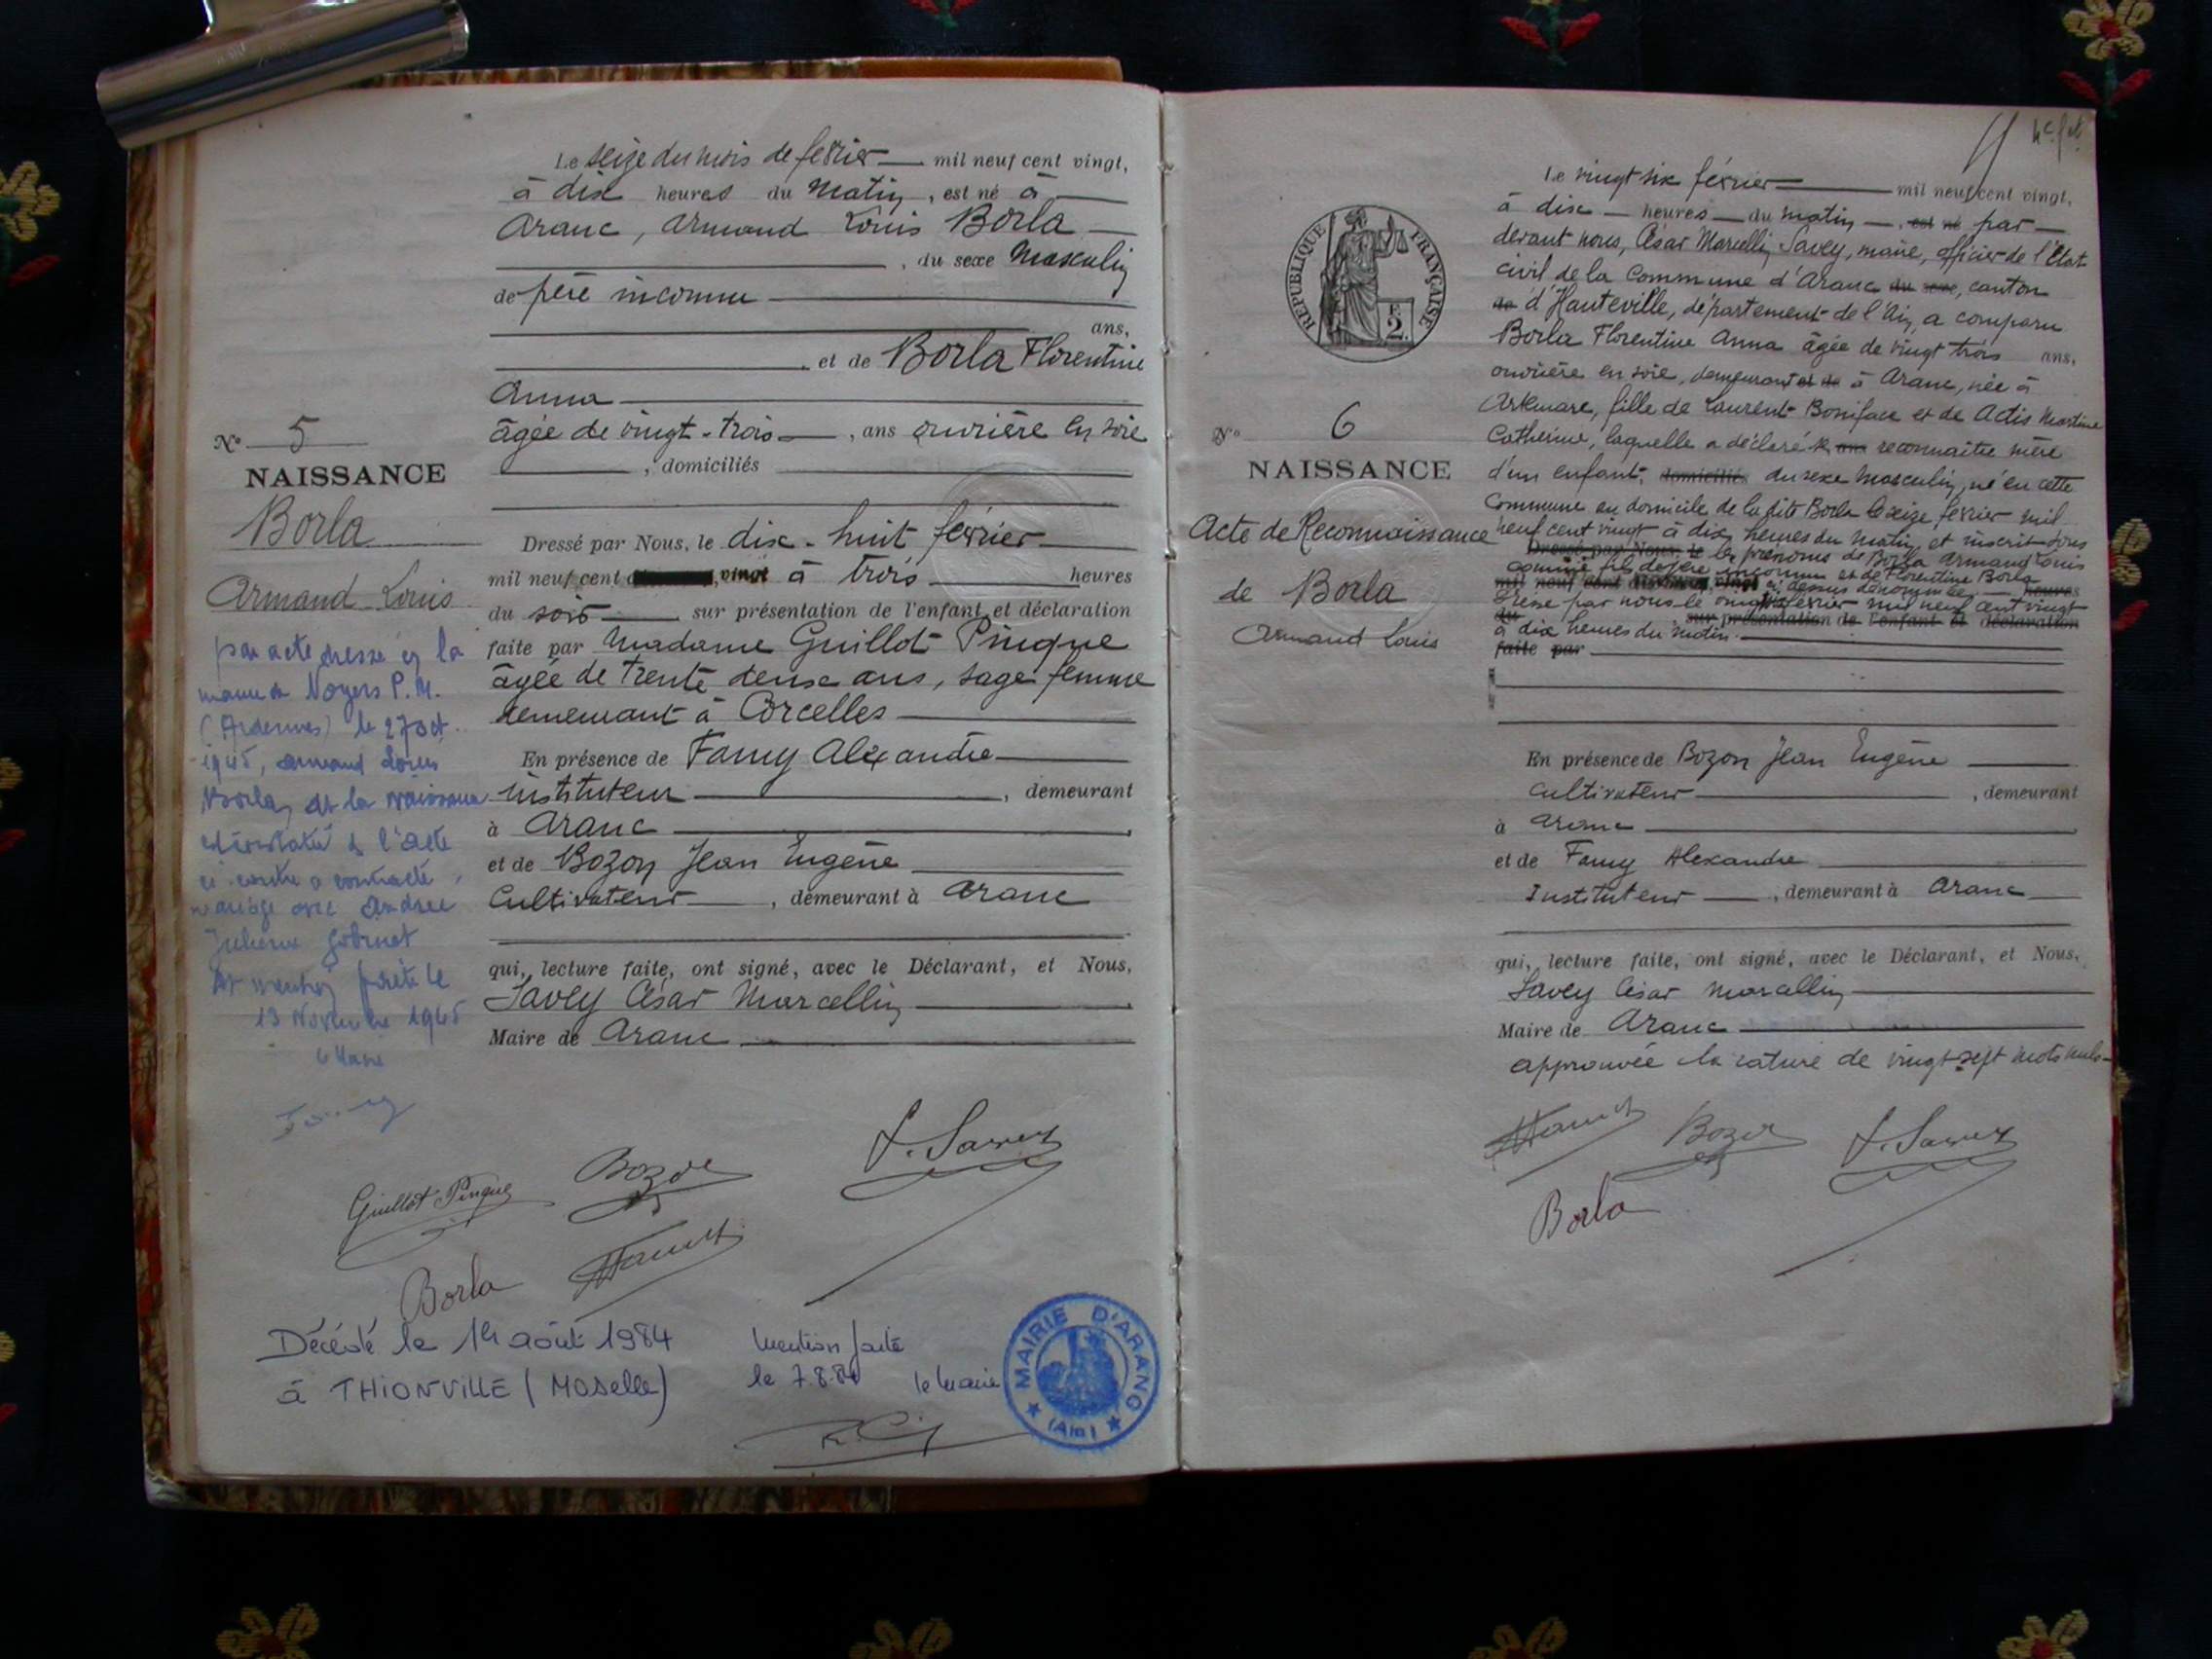 Le seize du mois de février mil neuf cent vingt,
à dix heures du Matin, est né à
Aranc, Armand Louis Borla
, du sexe Masculin
de père inconnu
ans,
et de Borla Florentine
Anna
âgée de vingt-trois, ans ouvrière en soie
, domiciliés
N° 5
NAISSANCE
Borla
Armand Louis
Dressé par Nous, le dix-huit février
mil neuf cent vingt à trois heures
du soir sur présentation de l'enfant et déclaration
faite par Madame Guillot Pingue
âgée de trente deux ans, sage femme
demeurant à Corcelles
En présence de Famy Alexandre
instituteur, demeurant
à Aranc
et de Bozon Jean Eugène
Cultivateur, demeurant à Aranc
qui, lecture faite, ont signé, avec le Déclarant, et Nous,
Savey César Marcellin
Maire de Aranc
par acte dressé en la
mairie de Noyers P.M.
(Ardennes) le 27 oct.
1945, Armand Louis
Borla, dt la naissance
est constatée ds l'acte
ci-contre a contracté
mariage avec Andrée
Julienne
Dt mention faite le
13 Novembre 1945
le Maire
Guillot Pingue
Bozon
S. Savey
Borla
AFamy
Décédé le 1er août 1984
à THIONVILLE (Moselle)
Mention faite
le 7.8.84
le Maire
MAIRIE D'ARANC
(Ain)
5
RÉPUBLIQUE FRANÇAISE
F.
2.
Le vingt six février mil neuf cent vingt,
à dix heures du matin, est né par
devant nous, César Marcellin Savey, maire, officier de l'Etat
civil de la Commune d'Aranc du sexe, canton
de d'Hauteville, département de l'Ain, a comparu
Borla Florentine Anna âgée de vingt trois ans,
ouvrière en soie, demeurant et de à Aranc, née à
Artemare, fille de Laurent Boniface et de Actis Martine
Catherine, laquelle a déclaré ans reconnaître mère
d'un enfant, domiciliés du sexe Masculin, né en cette
Commune au domicile de la dite Borla le seize février mil
neuf cent vingt à dix heures du matin et inscrit sous
Dressé par Nous, le les prénoms de Borla Armand Louis
comme fils de père inconnu et de Florentine Borla
mil neuf cent vingt ci-dessus dénommée heures
Dressé par nous le vingt six février mil neuf cent vingt
du sur présentation de l'enfant et déclaration
à dix heures du matin.
faite par
N° 6
NAISSANCE
Acte de Reconnaissance
de Borla
Armand Louis
En présence de Bozon Jean Eugène
Cultivateur, demeurant
à Aranc
et de Famy Alexandre
Instituteur, demeurant à Aranc
qui, lecture faite, ont signé, avec le Déclarant, et Nous,
Savey César Marcellin
Maire de Aranc
approuvée la rature de vingt-sept mots nuls
AFamy
Bozon
S. Savey
Borla